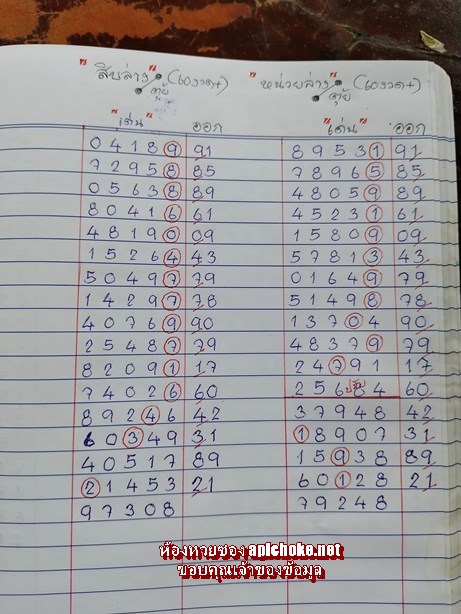 "สิบล่าง" (60งวด+) "หน่วยล่าง" (60งวด+)
ตุ้ย ตุ้ย
"เด่น" ออก "เด่น" ออก
0 4 1 8 9 91 8 9 5 3 1 91
7 2 9 5 8 85 7 8 9 6 5 85
0 5 6 3 8 89 4 8 0 5 9 89
8 0 4 1 6 61 4 5 2 3 1 61
4 8 1 9 0 09 1 5 8 0 9 09
1 5 2 6 4 43 5 7 8 1 3 43
5 0 4 9 7 79 0 1 6 4 9 79
1 4 2 9 7 78 5 1 4 9 8 78
4 0 7 6 9 90 1 3 7 0 4 90
2 5 4 8 7 79 4 8 3 7 9 79
8 2 0 9 1 17 2 4 7 9 1 17
7 4 0 2 6 60 2 5 6 8 4 60
8 9 2 4 6 42 3 7 9 4 8 42
6 0 3 4 9 31 1 8 9 0 7 31
4 0 5 1 7 89 1 5 9 3 8 89
2 1 4 5 3 21 6 0 1 2 8 21
9 7 3 0 8 7 9 2 4 8
ห้องหวยซอง apichoke.net
ขอบคุณเจ้าของข้อมูล